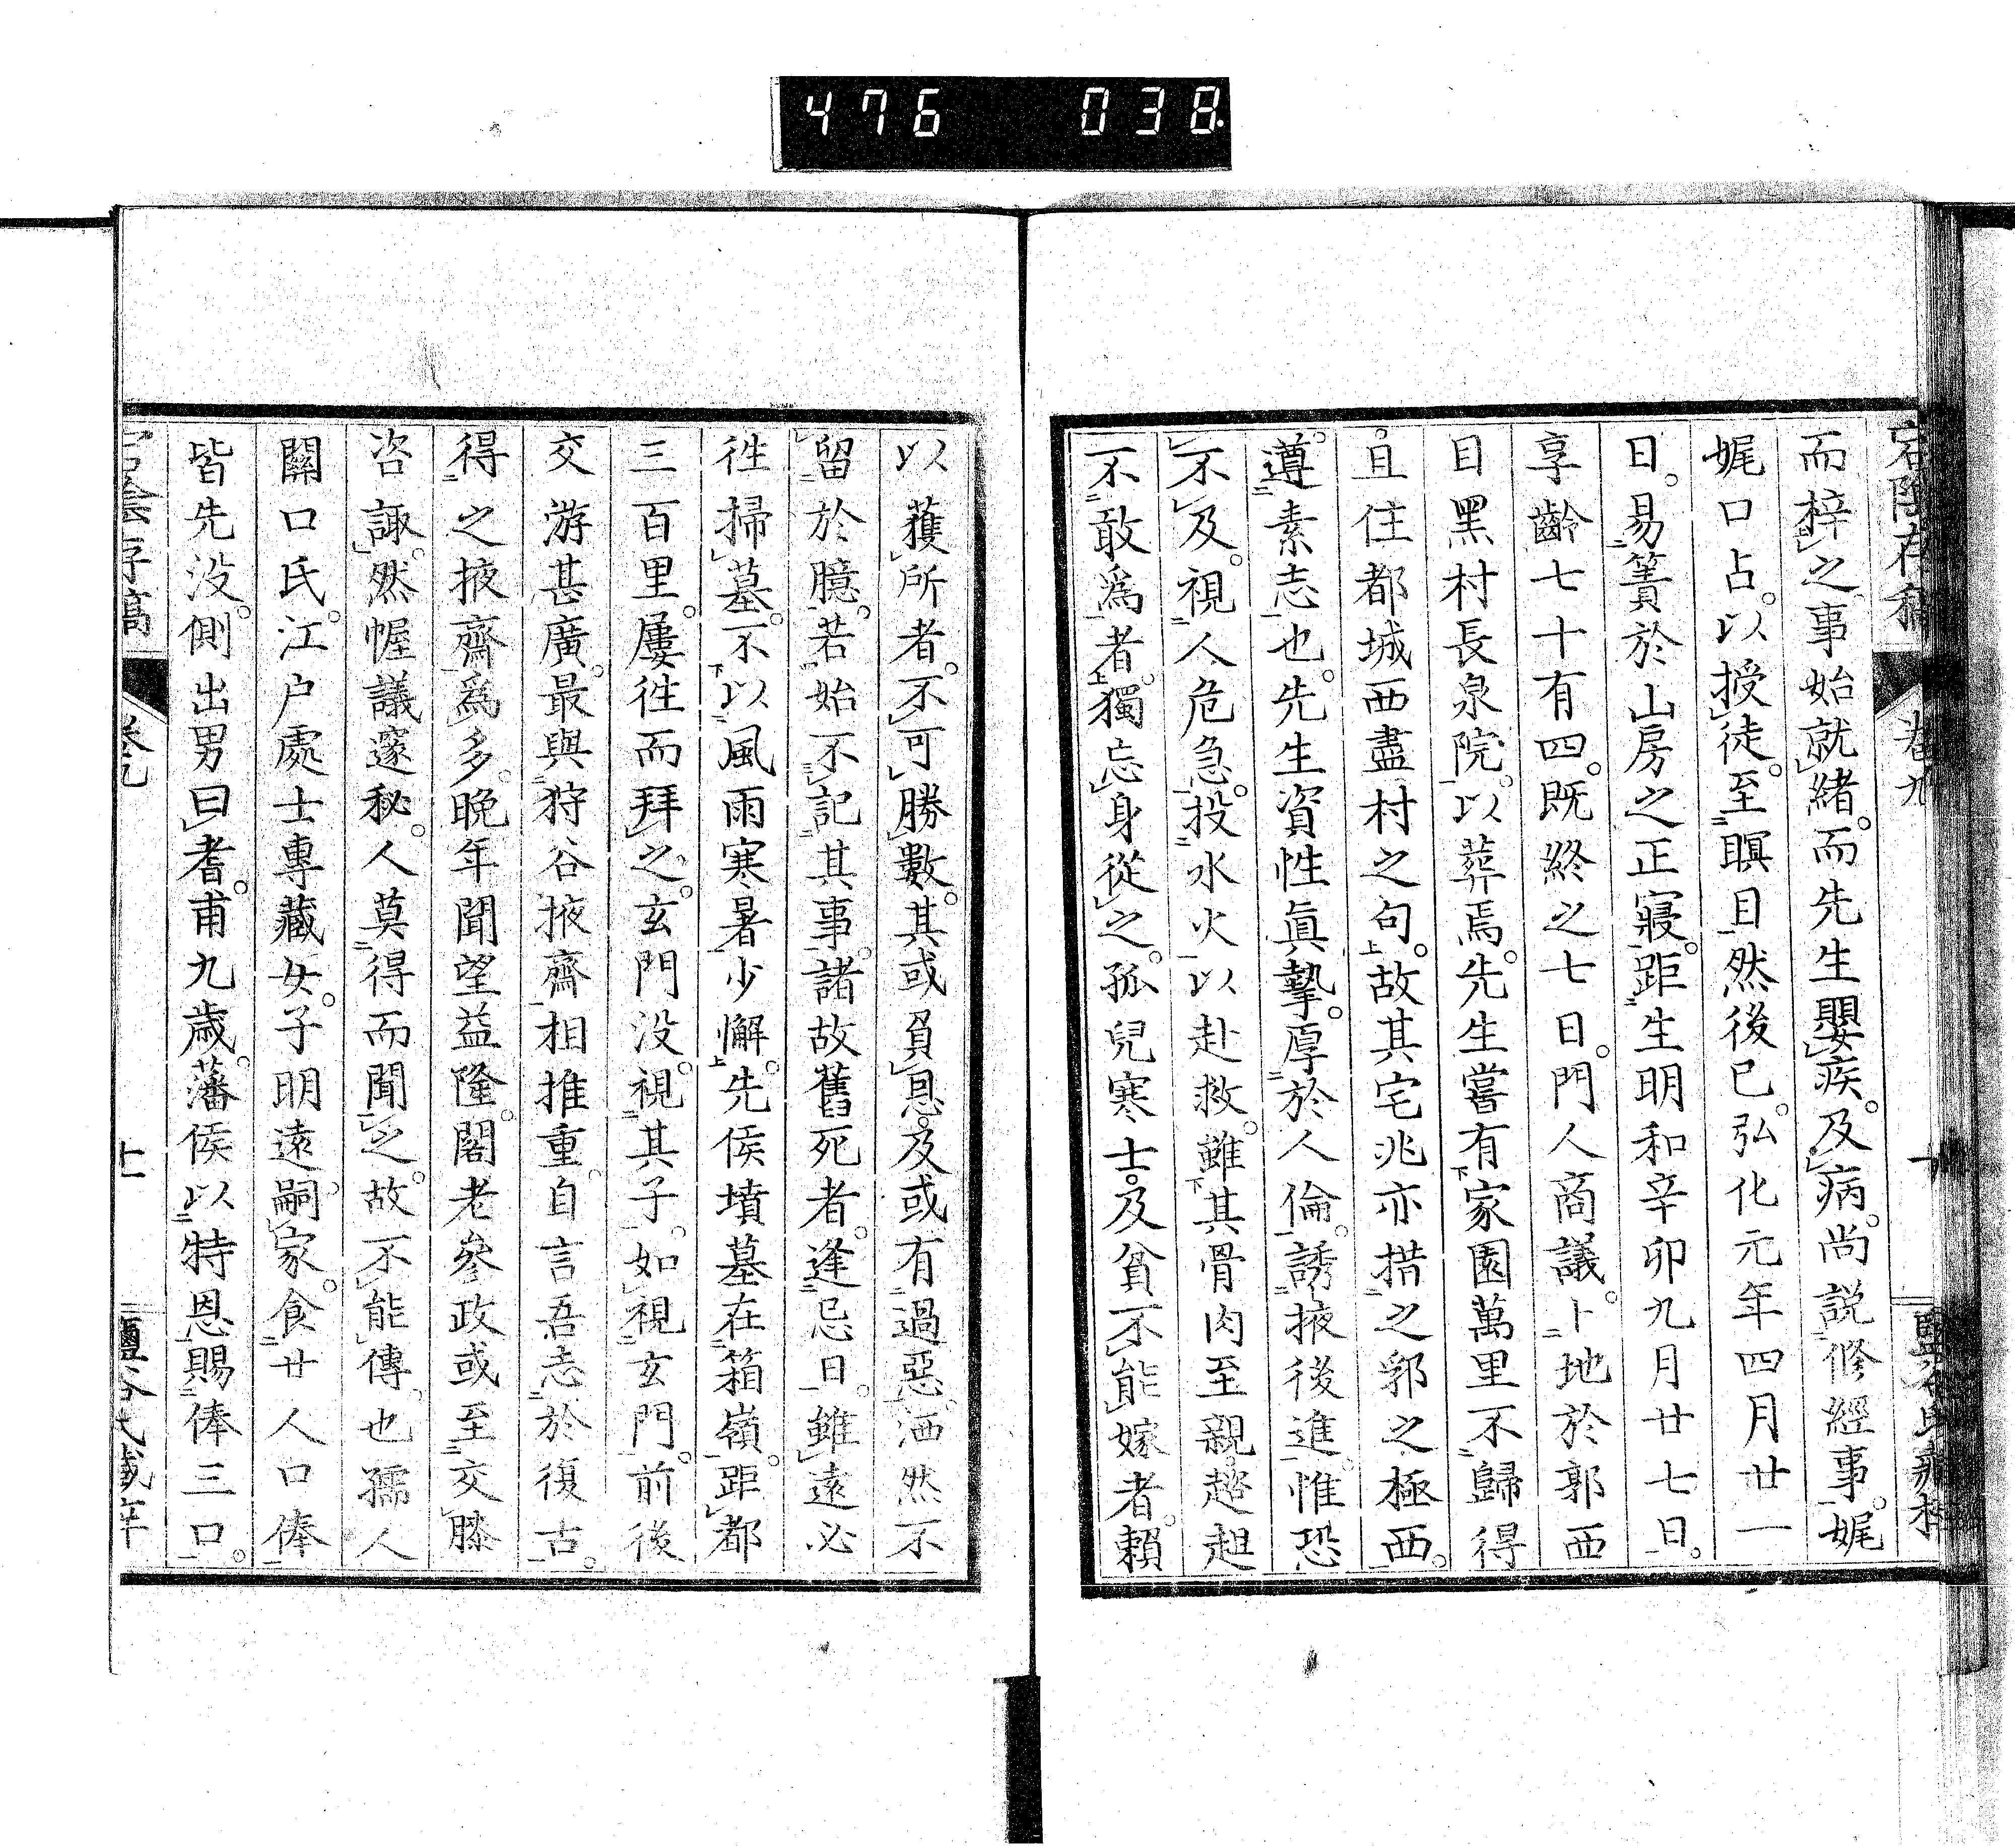 476 038
宕陰存稿 卷九 十 鹽谷氏藏梓
而梓之事始就緒。而先生嬰疾。及病。尚説修經事。娓
娓口占。以授徒。至瞑目然後已。弘化元年四月廿一
日。易簀於山房之正寢。距生明和辛卯九月廿七日。
享齡七十有四。既終之七日。門人商議。卜地於郭西
目黑村長泉院。以葬焉。先生嘗有家園萬里不歸得
且住都城西盡村之句。故其宅兆亦措之郭之極西。
遵素志也。先生資性眞摯。厚於人倫。誘掖後進。惟恐
不及。視人危急。投水火以赴救。雖其骨肉至親。趑趄
不敢爲者。獨忘身從之。孤兒寒士。及貧不能嫁者。賴
以獲所者。不可勝數。其或負恩。及或有過惡。洒然不
留於臆。若始不記其事。諸故舊死者。逢忌日。雖遠必
徃掃墓。不以風雨寒暑少懈。先侯墳墓在箱嶺。距都
三百里。屢徃而拜之。玄門没。視其子。如視玄門。前後
交游甚廣。最與狩谷掖齋相推重。自言吾志於復古。
得之掖齋爲多。晩年聞望益隆。閣老參政或至交膝
咨諏。然幄議邃秘。人莫得而聞之。故不能傳也。孺人
關口氏。江戸處士專藏女。子明遠嗣家。食廿人口俸。
皆先没。側出男曰耆。甫九歳。藩侯以特恩賜俸三口。
宕陰存稿 卷九 十一 鹽谷氏藏梓